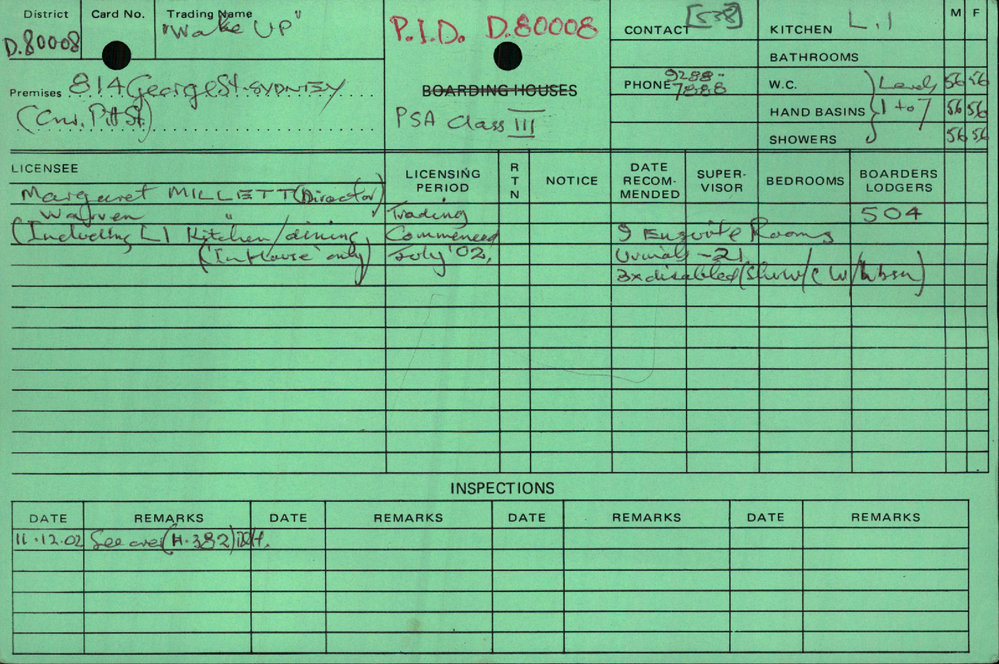 District Card No. Trading Name
D.80008 "Wake UP"
P.I.D. D.80008
CONTACT [538]
KITCHEN L.1
M F
BATHROOMS
Premises 814 George St. SYDNEY
(Cnr. Pitt St)
BOARDING HOUSES
PSA Class III
PHONE 9288-
7888
W.C. Levels 56 56
HAND BASINS 1 to 7 56 56
SHOWERS 56 56
LICENSEE
LICENSING PERIOD
RTN
NOTICE
DATE RECOM-MENDED
SUPER-VISOR
BEDROOMS
BOARDERS LODGERS
Margaret MILLETT (Director)
Warren " Trading 504
(Including L1 Kitchen/dining Commenced 9 Ensuite Rooms
('In House' only) July '02. Urinals - 21
3x disabled (Shwr/C W/H bsn)
INSPECTIONS
DATE REMARKS DATE REMARKS DATE REMARKS DATE REMARKS
11.12.02 See over (H.382)